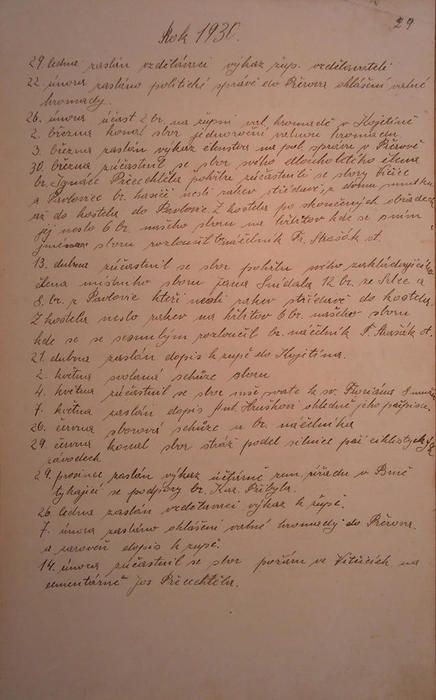 29
Rok 1930.
29. ledna zaslán vzdělávací výkaz žup. vzdělavateli
22. února zasláno politické správě do Přerova ohlášení valné
hromady.
26. února účast 2 br. na župní val. hromadě v Kojetíně
2. března konal sbor jednoroční valnou hromadu
3. března zaslán výkaz členstva na pol. správu v Přerově
30. března zúčastnil se sbor svého dlouholetého člena
br. Ignáce Přecechtěla pohřbu zúčastnili se sbory
z Pavlovic br. hasiči nesli rakev střídavě z domu smutku
až do kostela do Pavlovic. Z kostela po skončených obřadech
jej neslo 6 br. našeho sboru na hřbitov kde se s ním
jménem sboru rozloučil br. náčelník Fr. Strašák st.
13. dubna zúčastnil se sbor pohřbu svého zakládajícího
člena místního sboru Jana Smídala 12 br. ze a
8. br. z Pavlovic kteří nesli rakev střídavě do kostela.
Z kostela neslo rakev na hřbitov 6 br. našeho sboru
kde se se zesnulým rozloučil br. náčelník F. Strašák st.
21. dubna zaslán dopis k župě do Kojetína.
2. května svolaná schůze sboru
4. května zúčastnil se sbor mše svaté k sv. Floriánu 8 muži
7. května zaslán dopis ohledně jeho příspěvku.
26. června sborová schůze u br. náčelníka
29. června konal sbor stráž podél silnice při cyklistických
závodech.
29. prosince zaslán výkaz účtárně zem. úřadu v Brně
týkající se podpory br. Kar. Přibyla.
26. ledna zaslán vzdělávací výkaz k župě.
7. února zasláno ohlášení valné hromady do Přerova
a zároveň dopis k župě.
14. února zúčastnil se sbor požáru ve Vítčicích na
cementárně Jos Přecechtěla.